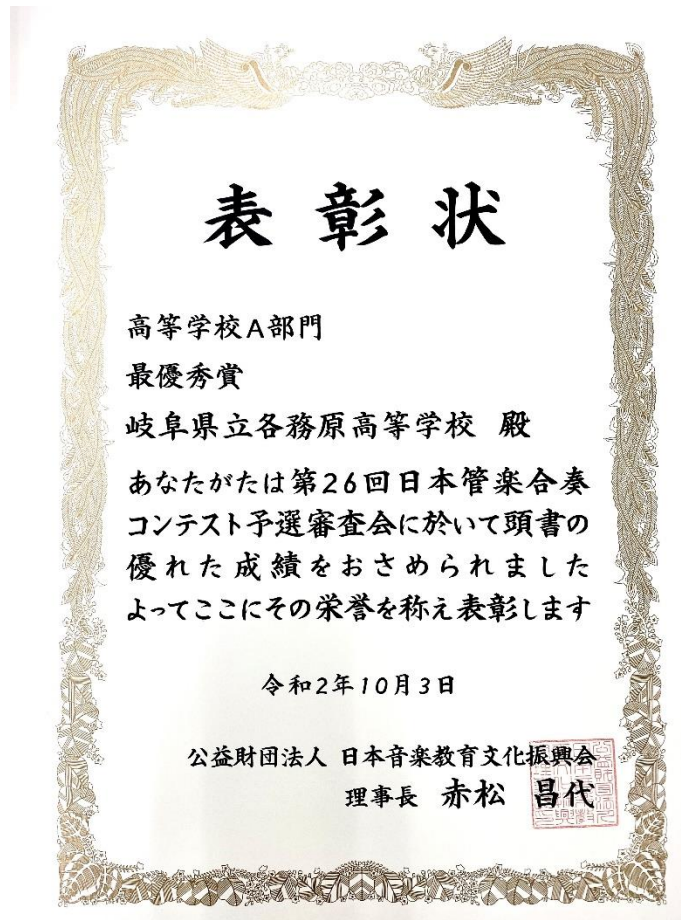 表彰状
高等学校A部門
最優秀賞
岐阜県立各務原高等学校 殿
あなたがたは第26回日本管楽合奏
コンテスト予選審査会に於いて頭書の
優れた成績をおさめられました
よってここにその栄誉を称え表彰します
令和2年10月3日
公益財団法人 日本音楽教育文化振興会
理事長 赤松 昌代